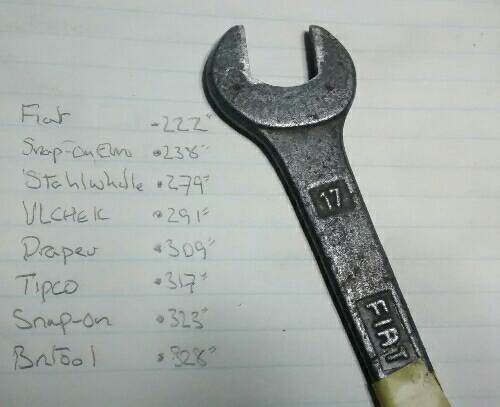 Fiat .222"
Snap-on Euro .238"
Stahlwhille .279"
VLCHEK .291"
Draper .309"
Tipco .317"
Snap-on .323"
Britool .328"
17
FIAT